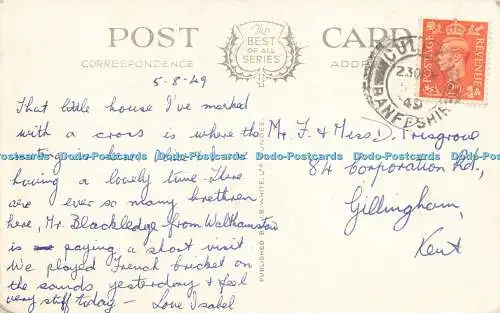 POST CARD
The
BEST
OF ALL
SERIES
CORRESPONDENCE
ADDRE
5-8-49
That little house I've marked
with a cross is where the
having a lovely time. There
are ever so many brethren
here, Mr. Blackledge from Walthamstow
is paying a short visit
We played French cricket on
the sands yesterday & feel
very stiff today — Love Isabel
Mr. F. & Miss D. Frisgrove
84 Corporation Rd.,
Gillingham,
Kent
CULL
230
49
BANFFSHIRE
POSTAGE
REVENUE
2D
Dodo-Postcards Dodo-Postcards Dodo-Postcards Dodo-Postcards Dodo-Postcards Dodo-Postcards